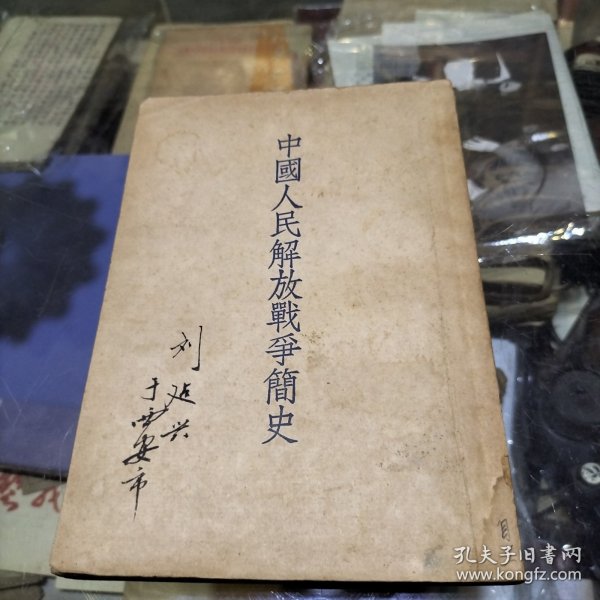 中國人民解放戰爭簡史
刘延兴
于西安市
孔夫子旧书网
www.kongfz.com